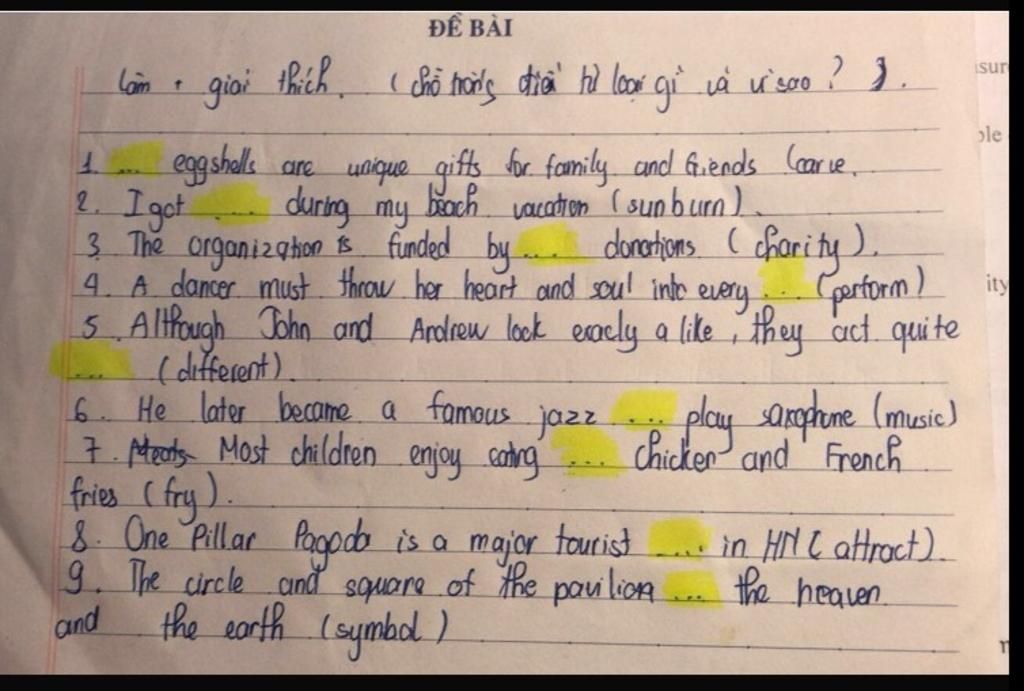 ĐỀ BÀI
làm + giải thích. (chỗ trống điền từ loại gì và vì sao? ).
1. ... eggshells are unique gifts for family and friends (carve.
2. I got .... during my beach vacation (sunburn).
3. The organization is funded by .... donations (charity).
4. A dancer must throw her heart and soul into every ... (perform)
5. Although John and Andrew look exacly a like, they act quite
... (different).
6. He later became a famous jazz .... play saxophone (music)
7. Most children enjoy eating ... Chicken and French
fries (fry).
8. One Pillar Pagoda is a major tourist .... in HN (attract).
9. The circle and square of the pavilion ... the heaven
and the earth (symbol)
sur
ple
ity